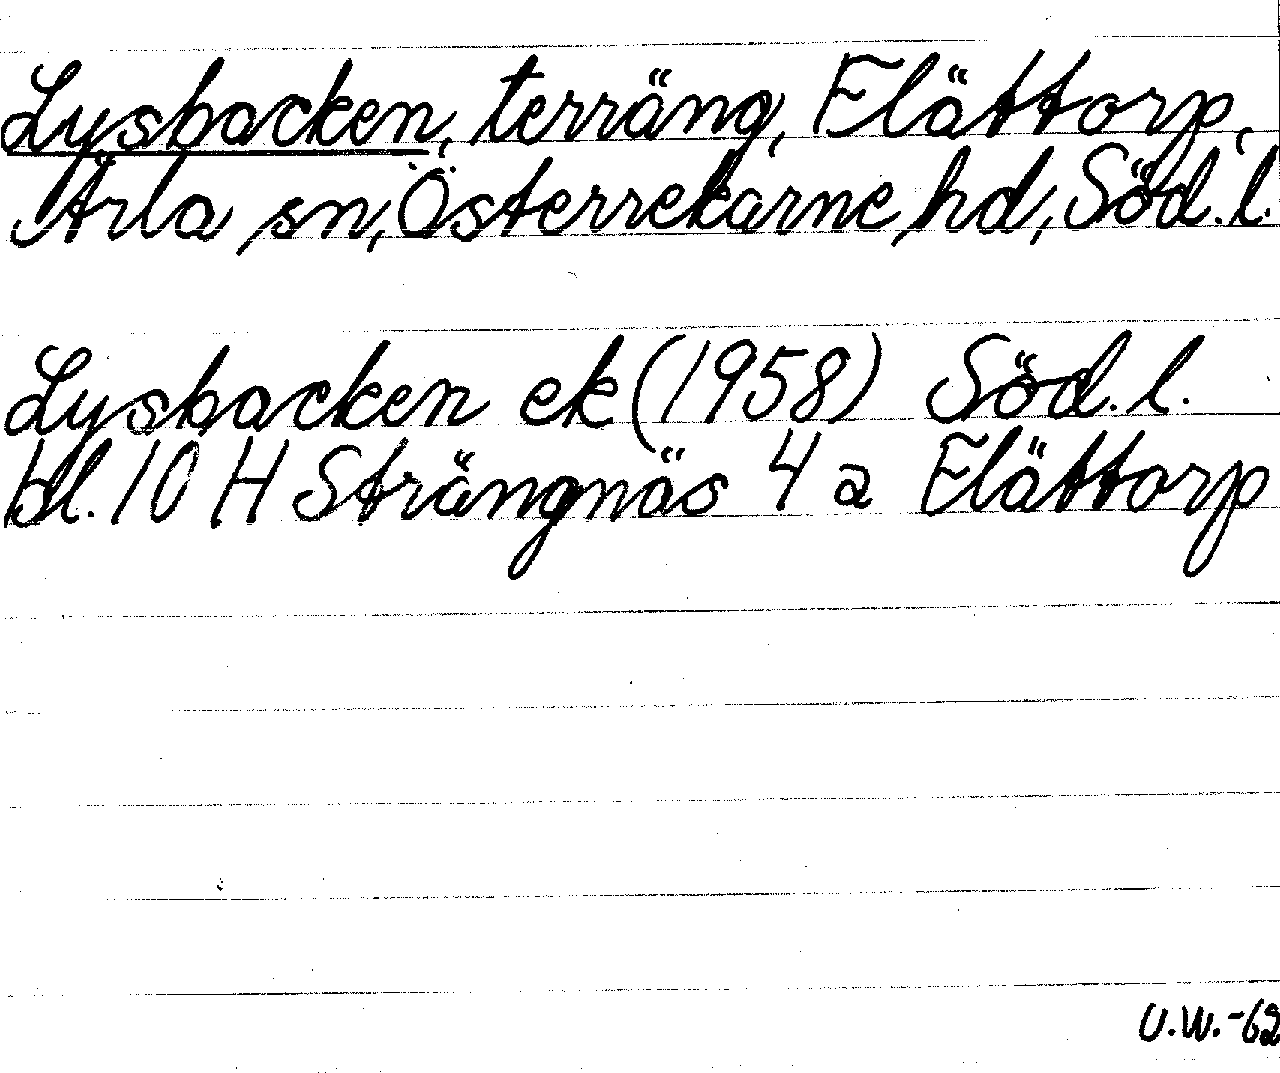 Lysbacken, terräng, Flättorp,
Ärla sn, Österrekarne hd, Söd. l.
Lysbacken ek (1958) Söd. l.
bl. 10 H Strängnäs 4 a Flättorp
U.W.-62